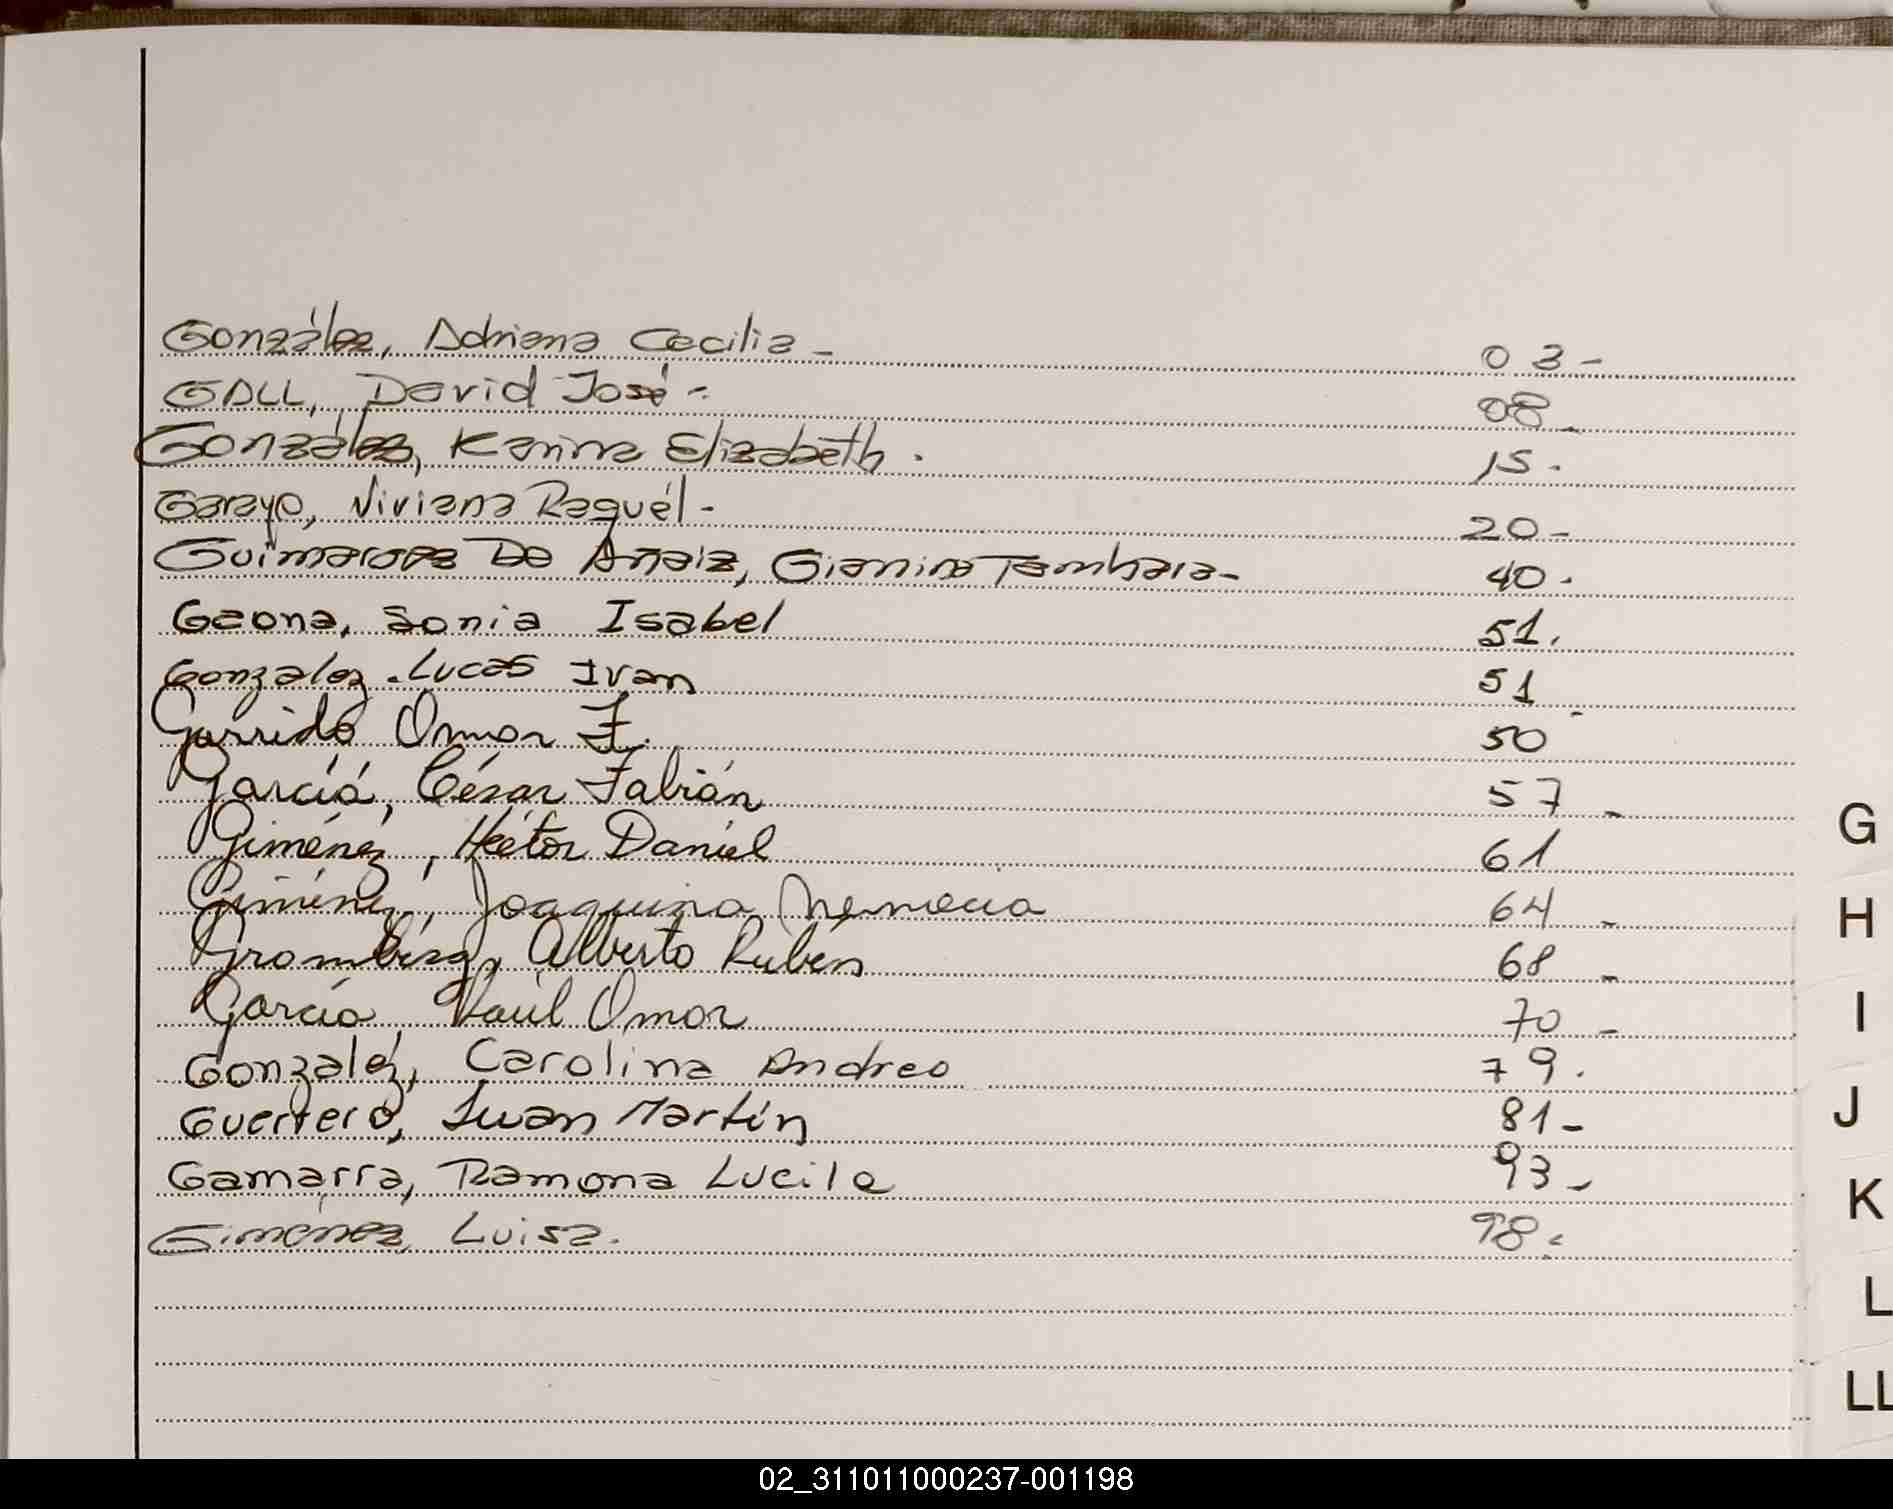 González, Adriana Cecilia - 03 -
GALL, David José - 08 -
González, Karina Elizabeth. 15.
Garayo, Viviana Raquél - 20 -
Guimaraes De Anaiz, Gianina Tambara - 40.
Gaona, Sonia Isabel 51.
Gonzalez. Lucas Ivan 51
Garrido Omar F. 50
García, César Fabián 57 -
Giménez, Héctor Daniel 61
Giménez, Joaquina Nemecia 64 -
Gromberg, Alberto Rubén 68 -
García, Raúl Omar 70 -
Gonzaléz, Carolina Andrea 79.
Guerrero, Juan Martín 81 -
Gamarra, Ramona Lucila 93 -
Giménez, Luisa. 98.
G
H
I
J
K
L
LL
02_311011000237-001198